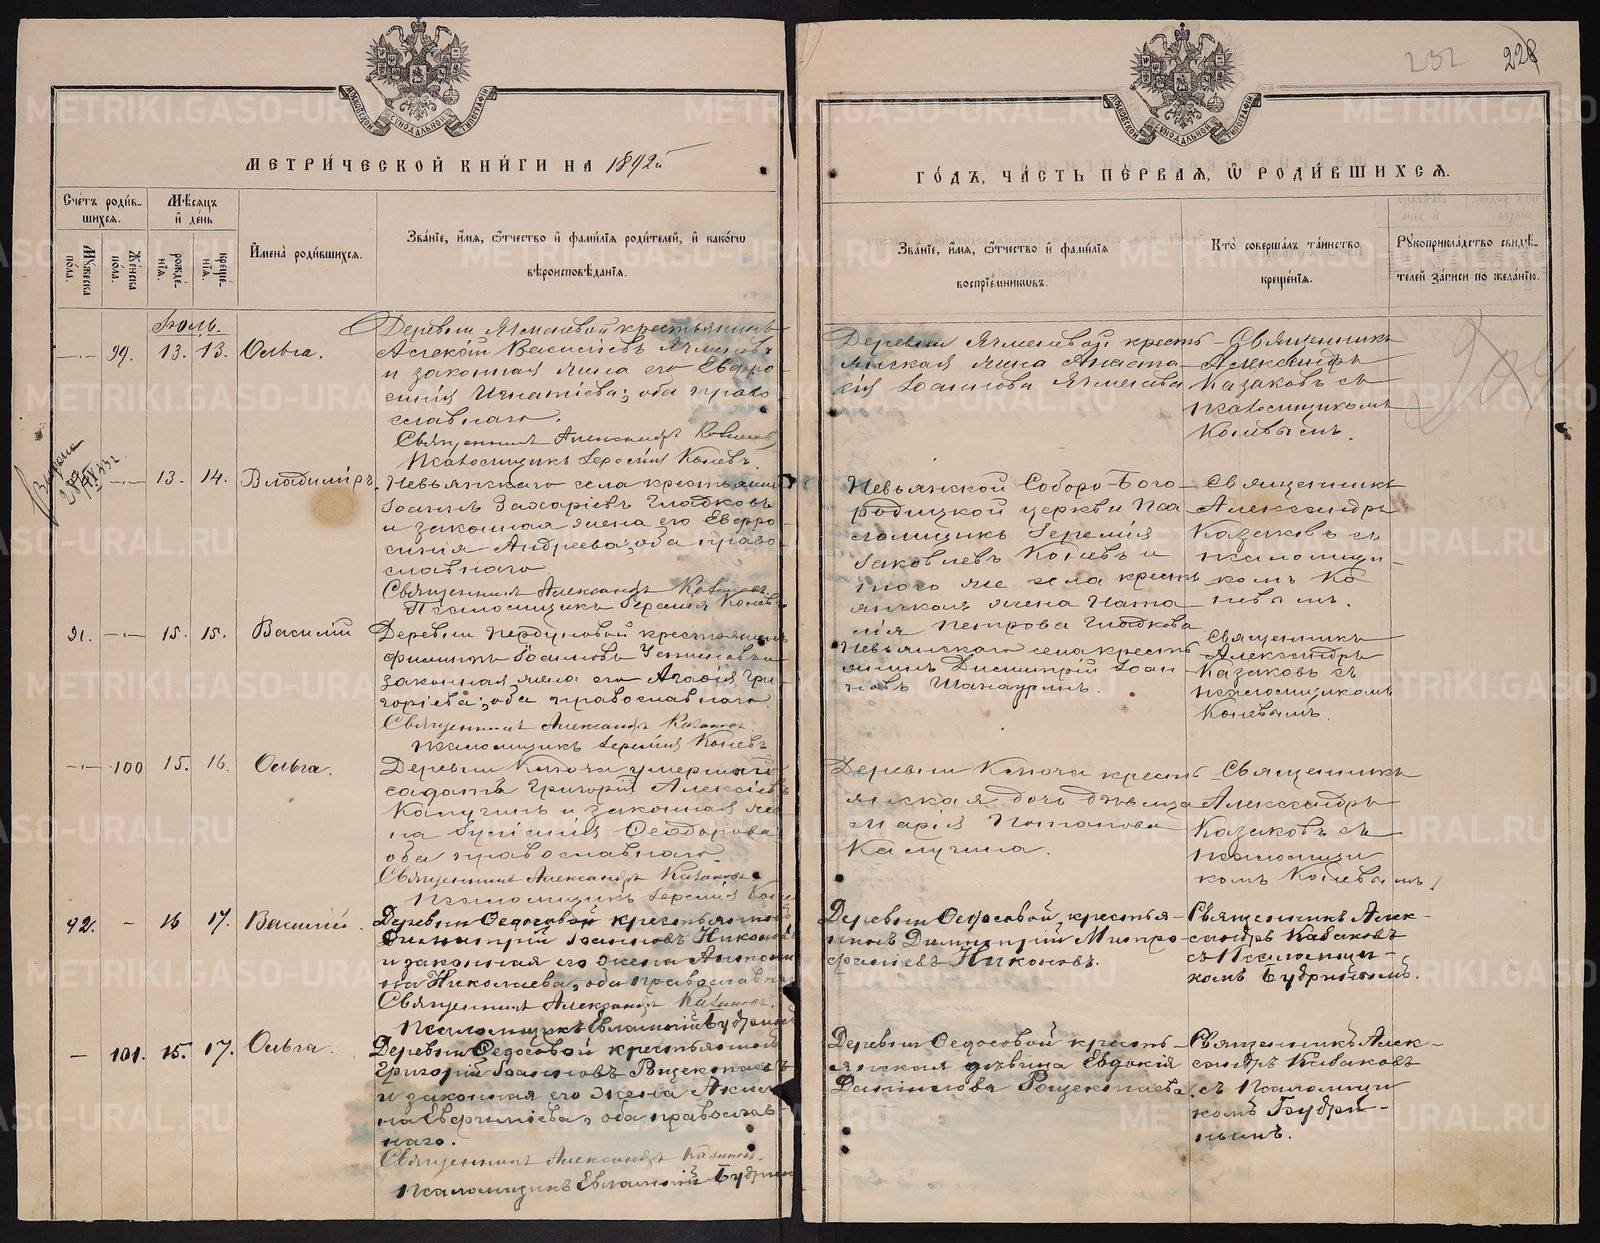 МОСКОВСКОЙ СѴНОДАЛЬНОЙ ТИПОГРАФІИ
МЕТРИ́ЧЕСКОЙ КНИ́ГИ НА 1892й
Сче́тъ роди́в-
шихсѧ.
Мѣ́сѧцъ
и҆ де́нь
Мꙋжеска по́ла.
Же́нска по́ла.
рожде́-
нїѧ.
креще́-
нїѧ.
И҆мена̀ роди́вшихсѧ.
Зва́нїе, и҆́мѧ, ѻ҆́тчество и҆ фами́лїѧ роди́телей, и҆ како́гѡ
вѣроисповѣ́данїѧ.
Іюль.
—.— 99. 13. 13. Ольга.
Деревни Ячменевой крестьянинъ
Алексѣй Васильевъ Ячменевъ
и законная жена его Евфро-
синія Игнатіева; оба право-
славнаго.
Священникъ Александръ Казаковъ
Псаломщикъ Іеремія Коневъ.
—.— 13. 14. Владиміръ.
Невьянскаго села крестьянин
Іоаннъ Захаріевъ Гладковъ
и законная жена его Евфро-
синия Андреева; оба право-
славнаго.
Священникъ Александръ Казаковъ.
Псаломщикъ Іеремія Коневъ
91. —.— 15. 15. Василій
Деревни крестьянинъ
Филиппъ Іоанновъ Устиновъ и
законная жена его Агафія Гри-
горіева; оба православнаго.
Священникъ Александръ Казаковъ.
Псаломщикъ Іеремія Коневъ
—.— 100 15. 16. Ольга.
Деревни Ключи умершаго
солдата Григорій Алексіевъ
Калугинъ и законная же-
на Ѳеодорова
оба православнаго.
Священникъ Александръ Казаковъ
Псаломщикъ Іеремія Коне
92. — 16 17. Василій.
Деревни Ѳедосовой крестьянинъ
Димитрій Іоанновъ Никонов
и законная его жена Антони-
на Николаева, оба православна
Священникъ Александръ Казаковъ.
Псаломщикъ Евлампій Будрин
— 101. 15. 17. Ольга.
Деревни Ѳедосовой крестьянинъ
Григорій Іоанновъ Рощектаевъ
и законная его жена Акили-
на Евфиміева, оба православ
наго.
Священникъ Александръ Казаковъ.
Псаломщикъ Евлампій Будрин
232 228
МОСКОВСКОЙ СѴНОДАЛЬНОЙ ТИПОГРАФІИ
ГО́ДЪ, ЧА́СТЬ ПЕ́РВАѦ, Ѡ҆ РОДИ́ВШИХСѦ.
Зва́нїе, и҆́мѧ, ѻ҆́тчество и҆ фами́лїѧ
воспрїе́мникѡвъ.
Кто̀ соверша́лъ та́инство
креще́нїѧ.
Рꙋкоприкла́дство свидѣ́-
телей за́писи по жела́нїю.
Деревни Ячменевой кресть-
янская жена Анаста-
сія Іоаннова Ячменева
Священникъ
Александръ
Казаковъ съ
псаломщикомъ
Коневымъ.
Невьянской Соборо-Бого-
родицкой церкви Пса-
ломщикъ Іеремія
Іаковлевъ Коневъ и
того же села кресть-
янская жена Ната-
лія Петрова Гладкова
Священникъ
Александръ
Казаковъ съ
псаломщи-
комъ Ко-
невымъ.
Невьянскаго села кресть-
янинъ Димитрій Іоан-
новъ Шанауринъ.
Священникъ
Александръ
Казаковъ съ
псаломщикомъ
Коневымъ.
Деревни Ключи кресть-
янская дочь дѣвица
Марія Потапова
Калугина.
Священникъ
Александръ
Казаковъ съ
псаломщи
комъ Коневымъ.
Деревни Ѳедосовой, крестья-
нинъ Димитрій Митро-
фаніевъ Никоновъ.
Священникъ Алек-
сандръ Казаковъ
съ Псаломщи-
комъ Будринымъ.
Деревни Ѳедосовой кресть-
янская дѣвица Евдокія
Даніилова Рощектаева.
Священникъ Алек-
сандръ Казаковъ
съ Псаломщи
комъ Будри-
нымъ.
METRIKI.GASO-URAL.RU